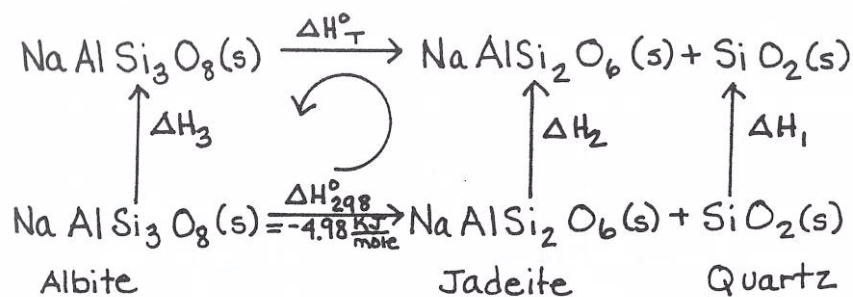 NaAlSi₃O₈(s) ΔH°T → NaAlSi₂O₆(s) + SiO₂(s)
ΔH₃ ΔH₂ ΔH₁
NaAlSi₃O₈(s) ΔH°298 = -4.98 KJ/mole → NaAlSi₂O₆(s) + SiO₂(s)
Albite Jadeite Quartz